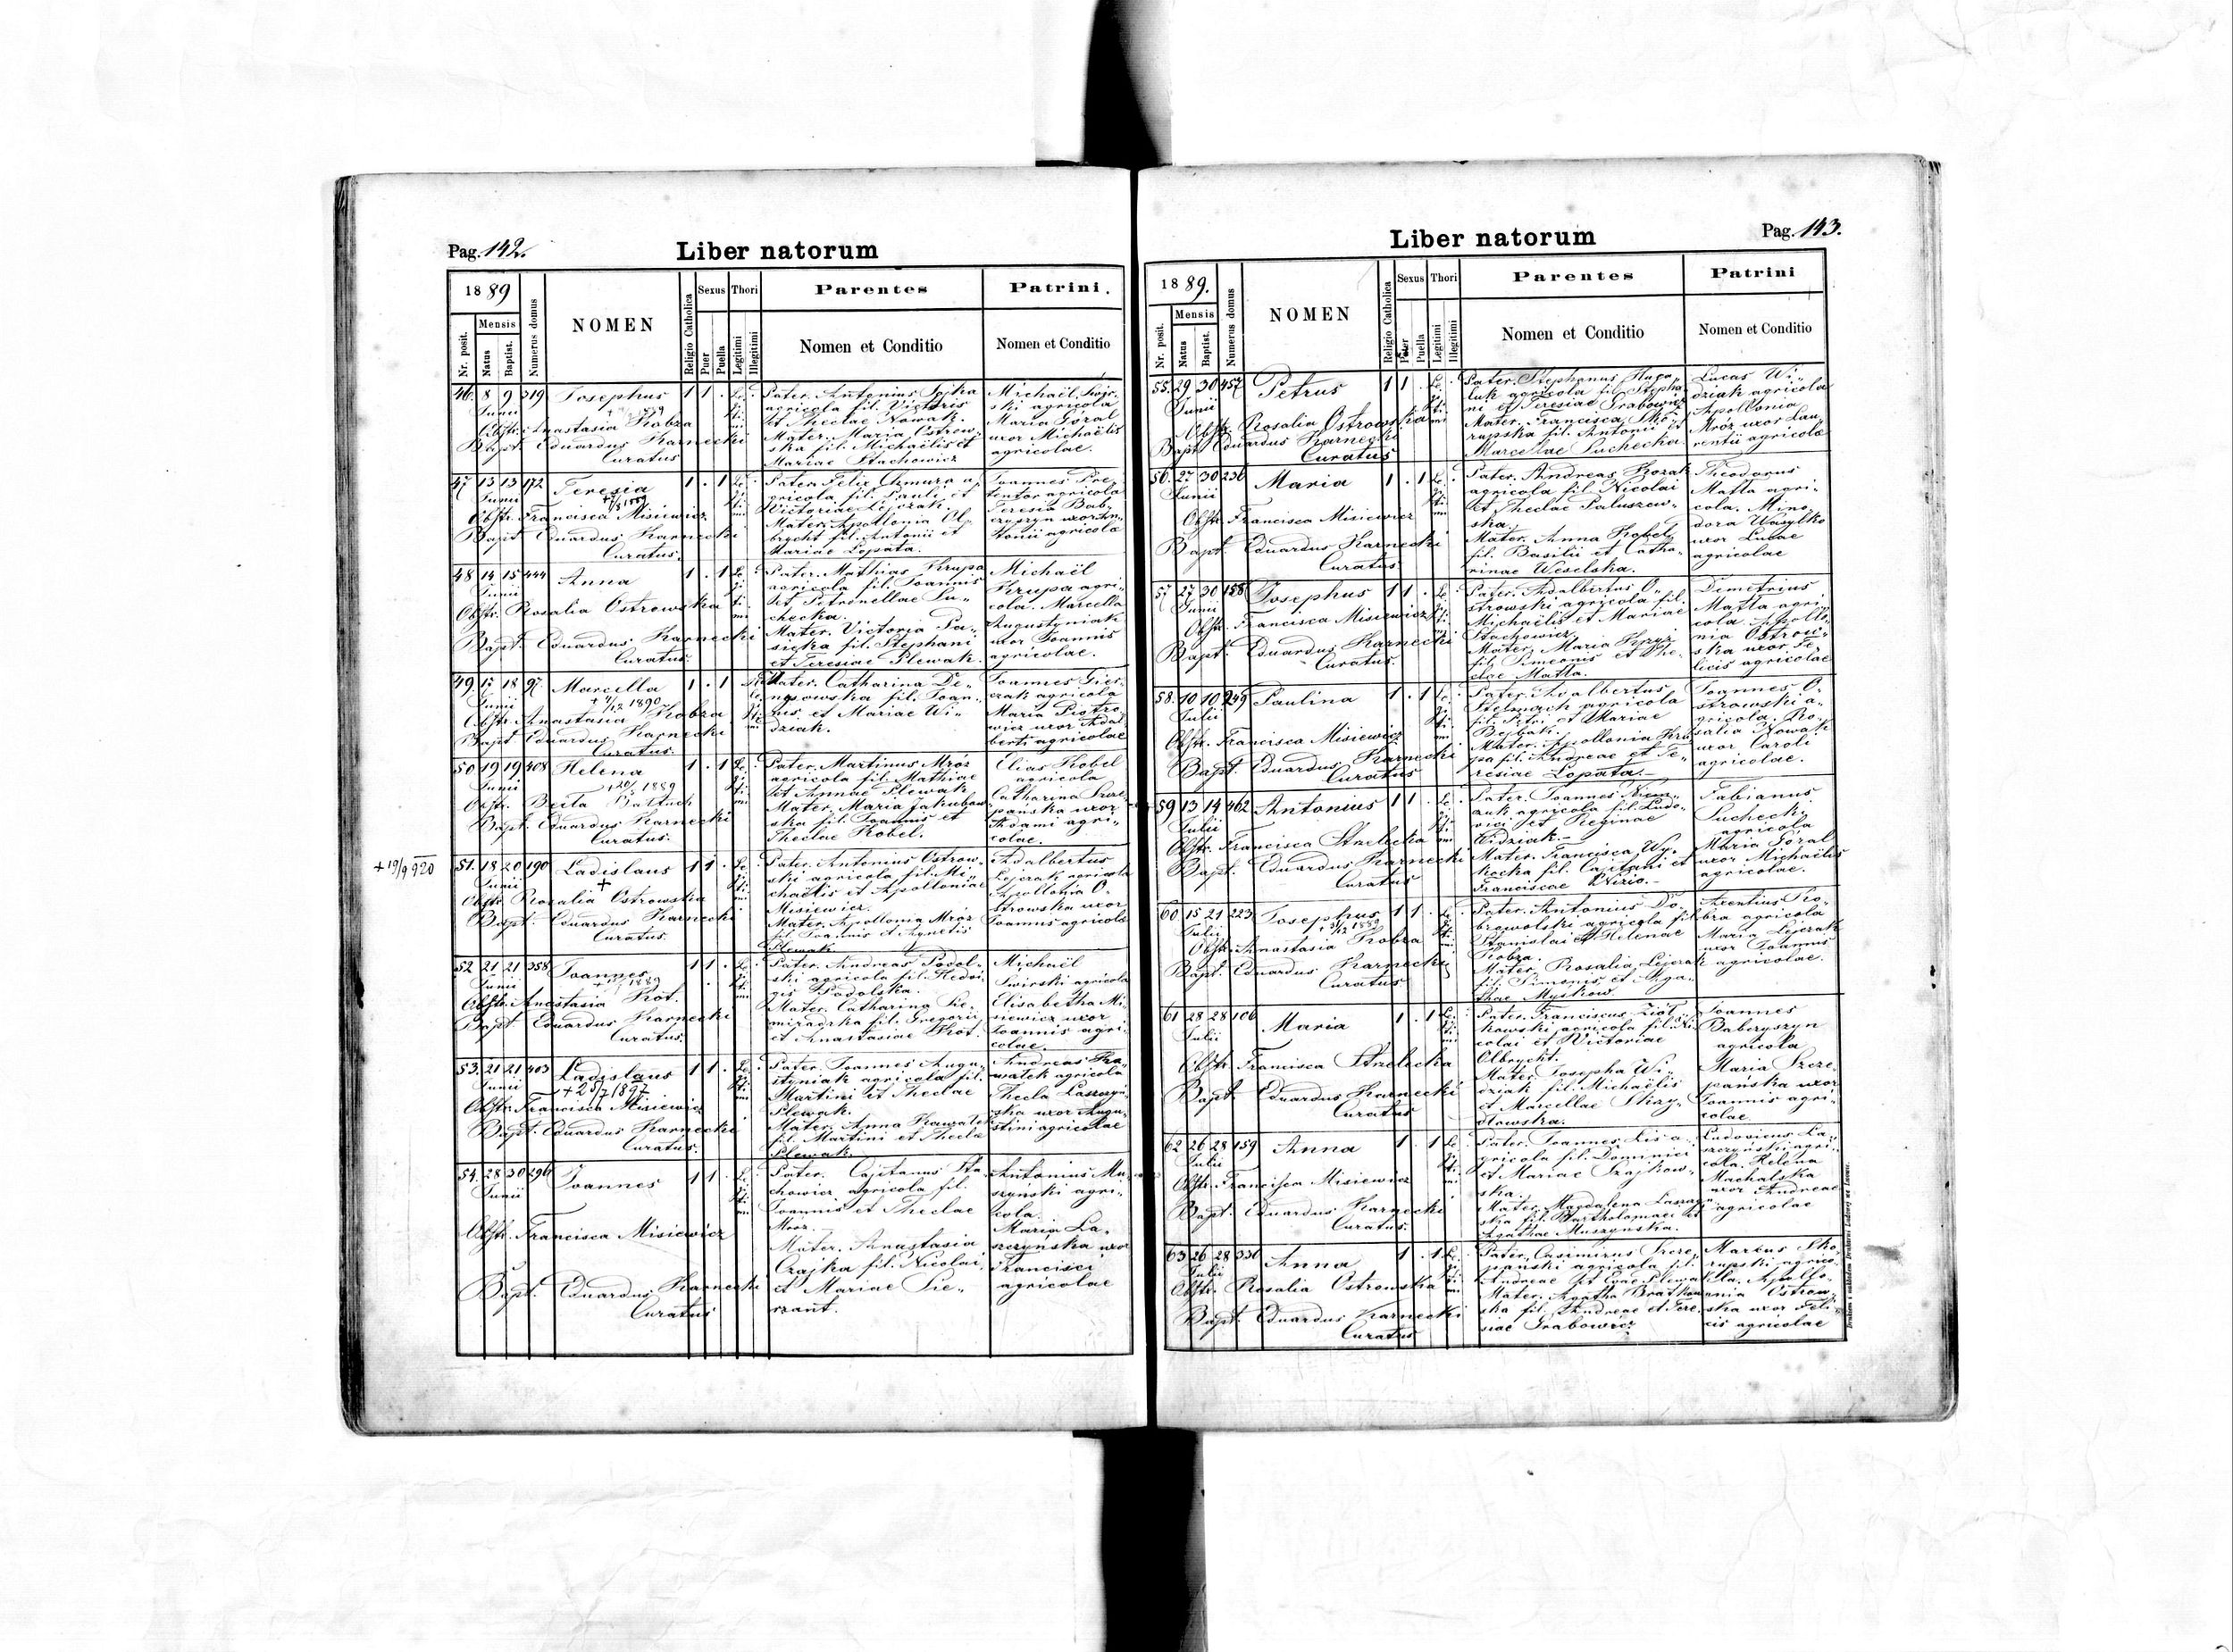 Pag. 142.
Liber natorum
1889
Nr. posit.
Mensis
Natus
Baptist.
Numerus domus
NOMEN
Religio Catholica
Sexus
Puer
Puella
Thori
Legitimi
Illegitimi
Parentes
Nomen et Conditio
Patrini.
Nomen et Conditio
46. 8 9 319 Josephus 1 1
Junii
Obstr. Anastasia Kobza
Bapt. Eduardus Karnecki
Curatus
Pater. Antonius Sojka
agricola fil. Victoris
et Theclae Nowak.
Mater. Maria Ostrow-
ska fil. Michaëlis et
Mariae Stachowicz
Michaël
ski agricola
Maria Góral
uxor Michaëlis
agricolae.
47 13 13 172 Teresia 1 1
Junii
Obstr. Francisca Misiewicz
Bapt Eduardus Karnecki
Curatus.
Pater Felix Chmura a-
gricola fil. Pauli et
Victoriae Lejczak.
Mater. Apollonia Ol-
brycht fil. Antonii et
Mariae Lopata.
Joannes Pre-
tentor agricola
Teresia Bab-
czyszyn uxor An-
tonii agricola
48 14 15 444 Anna 1 1
Junii
Obstr. Rosalia Ostrowska
Bapt. Eduardus Karnecki
Curatus.
Pater. Mathias Krupa
agricola fil. Joannis
et Petronellae Su-
checka.
Mater. Victoria Pa-
siecka fil. Stephani
et Teresiae Plewak.
Michaël
Krupa agri-
cola. Marcella
Augustyniak
uxor Joannis
agricolae.
49. 17 18 97 Marcella 1 1
Junii + 4/12 1890
Obstr. Anastasia Kobza
Bapt Eduardus Karnecki
Curatus.
Mater. Catharina De-
nysowska fil. Joan-
nis et Mariae Wi-
dziak.
Joannes Gier-
czak agricola
Maria Piotro-
wicz uxor Adal-
berti agricolae
50 19 19 408 Helena 1 1
Junii 1889
Obstr. Berta
Bapt. Eduardus Karnecki
Curatus.
Pater. Martinus Mróz
agricola fil. Mathiae
et Annae Plewak
Mater. Maria Jakubow-
ska fil. Joannis et
Theclae Kobel.
Elias Kobel
agricola
Catharina Szcze-
pańska uxor
Adami agri-
colae.
+ 19/9 920
51. 18 20 190 Ladislaus 1 1
Junii +
Obstr Rosalia Ostrowska
Bapt. Eduardus Karnecki
Curatus.
Pater. Antonius Ostrow-
ski agricola fil. Mi-
chaëlis et Apolloniae
Misiewicz.
Mater. Apollonia Mróz
fil. Joannis et Agnetis
Plewak
Adalbertus
Lejczak agricola
Apollonia O-
strowska uxor
Joannis agricola
52 21 21 358 Joannes 1 1
Junii 1889
Obstr. Anastasia Kot.
Bapt Eduardus Karnecki
Curatus.
Pater. Andreas Podol-
ski agricola fil. Hedvi-
gis Podolska.
Mater. Catharina Nie-
miradzka fil. Gregorii
et Anastasiae Kot.
Michaël
Swirski agricola
Elisabetha Mi-
siewicz uxor
Joannis agri-
colae.
53. 21 21 403 Ladislaus 1 1
Junii + 25/7 1897
Obstr. Francisca Misiewicz
Bapt. Eduardus Karnecki
Curatus.
Pater. Joannes Augu-
styniak agricola fil.
Martini et Theclae
Plewak.
Mater. Anna Kawalek
fil. Martini et Thecla
Plewak.
Andreas Ka-
walek agricola
Thecla Laszczyń-
ska uxor Augu-
stini agricolae
54. 28 30 296 Joannes 1 1
Junii
Obstr. Francisca Misiewicz
Bapt. Eduardus Karnecki
Curatus
Pater. Cajetanus Sta-
chowicz agricola fil.
Joannis et Theclae
Mróz.
Mater. Anastasia
Czajka fil. Nicolai
et Mariae Sie-
rżant.
Antonius Mu-
szyński agri-
cola.
Maria La-
szczyńska uxor
Francisci
agricolae
Liber natorum
Pag. 143.
1889.
Nr. posit.
Mensis
Natus
Baptist.
Numerus domus
NOMEN
Religio Catholica
Sexus
Puer
Puella
Thori
Legitimi
Illegitimi
Parentes
Nomen et Conditio
Patrini
Nomen et Conditio
55. 29 30 457 Petrus 1 1
Junii
Obstr. Rosalia Ostrowska
Bapt Eduardus Karnecki
Curatus
Pater. Stephanus Huga-
luk agricola fil. Stepha-
ni et Teresiae Grabowicz
Mater. Francisca Sko-
rupska fil. Antonii et
Marcellae Suchecka
Lucas Wi-
dziak agricola
Apollonia
Mróz uxor Lau-
rentii agricola
56. 27 30 236 Maria 1 1
Junii
Obstr. Francisca Misiewicz
Bapt. Eduardus Karnecki
Curatus
Pater. Andreas Kozak
agricola fil. Nicolai
et Theclae Paluszew-
ska.
Mater. Anna Kobel
fil. Basilii et Catha-
rinae Weselska.
Theodorus
Matla agri-
cola. Mino-
dora Wasylko
uxor Lucae
agricolae
57 27 30 158 Josephus 1 1
Junii
Obstr. Francisca Misiewicz
Bapt. Eduardus Karnecki
Curatus.
Pater. Adalbertus O-
strowski agricola fil.
Michaëlis et Mariae
Stachowicz.
Mater. Maria Kryż
fil. Simeonis et The-
clae Matla.
Demetrius
Matla agri-
cola. Apollo-
nia Ostrow-
ska uxor Fe-
licis agricolae
58. 10 10 249 Paulina 1 1
Julii
Obstr. Francisca Misiewicz
Bapt. Eduardus Karnecki
Curatus
Pater. Adalbertus
Stelmach agricola
fil. Petri et Mariae
Bojbak.
Mater. Apollonia Kru-
pa fil. Andreae et Te-
resiae Lopata.
Joannes O-
strowski a-
gricola. Ro-
salia Nowak
uxor Caroli
agricolae.
59 13 14 462 Antonius 1 1
Julii
Obstr. Francisca Strzelecka
Bapt. Eduardus Karnecki
Curatus
Pater. Joannes
agricola fil. Ludo-
vici et Reginae
Widziak.
Mater. Francisca Wy-
socka fil. Cajetani et
Franciscae Nizio.
Fabianus
Suchecki
agricola
Maria Góral
uxor Michaëlis
agricolae.
60 15 21 223 Josephus 1 1
Julii 1889
Obstr. Anastasia Kobza
Bapt. Eduardus Karnecki
Curatus
Pater. Antonius Do-
browolski agricola fil.
Stanislai et Helenae
Kobza.
Mater. Rosalia Lejczak
fil. Simonis et Aga-
thae Myskow.
Arentius Ko-
bza agricola
Maria Lejczak
uxor Joannis
agricolae.
61 28 28 106 Maria 1 1
Julii
Obstr. Francisca Strzelecka
Bapt. Eduardus Karnecki
Curatus
Pater. Franciscus Ziół-
kowski agricola fil. Ni-
colai et Victoriae
Olbrycht.
Mater. Josepha Wi-
dziak fil. Michaëlis
et Marcellae Skrzy-
dlowska.
Joannes
Babczyszyn
agricola
Maria Szcze-
pańska uxor
Joannis agri-
colae
62 26 28 159 Anna 1 1
Julii
Obstr. Francisca Misiewicz
Bapt. Eduardus Karnecki
Curatus.
Pater. Joannes Lis a-
gricola fil. Dominici
et Mariae Szajkow-
ska.
Mater. Magdalena Laszczyń-
ska fil. Bartholomaei et
Agathae Muszyńska.
Ludovicus La-
szczyński agri-
cola. Helena
Machalska
uxor Andreae
agricolae
63 26 28 336 Anna 1 1
Julii
Obstr. Rosalia Ostrowska
Bapt. Eduardus Karnecki
Curatus
Pater. Casimirus Szcze-
pański agricola fil.
Andreae et Evae Plewak
Mater. Agatha Bratkow-
ska fil. Andreae et Tere-
siae Grabowicz
Marcus Sko-
rupski agrico-
la. Apollo-
nia Ostrow-
ska uxor Feli-
cis agricolae